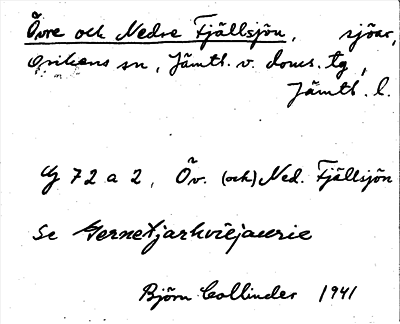 Övre och Nedre Fjällsjön, sjöar,
Offerdals sn, Jämtl. v. doms. tg,
Jämtl. l.
G 72 a 2, Öv. (och) Ned. Fjällsjön
Se Gernetjarhviejaurie
Björn Collinder 1941